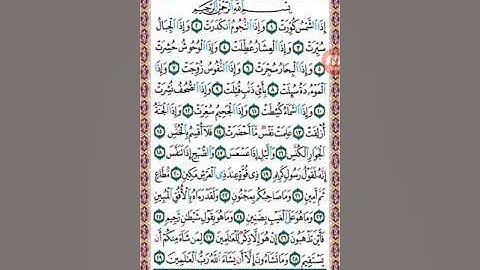 بِسْمِ اللَّهِ الرَّحْمَٰنِ الرَّحِيمِ
إِذَا الشَّمْسُ كُوِّرَتْ ۝١ وَإِذَا النُّجُومُ انكَدَرَتْ ۝٢ وَإِذَا الْجِبَالُ
سُيِّرَتْ ۝٣ وَإِذَا الْعِشَارُ عُطِّلَتْ ۝٤ وَإِذَا الْوُحُوشُ حُشِرَتْ
۝٥ وَإِذَا الْبِحَارُ سُجِّرَتْ ۝٦ وَإِذَا النُّفُوسُ زُوِّجَتْ ۝٧ وَإِذَا
الْمَوْءُودَةُ سُئِلَتْ ۝٨ بِأَيِّ ذَنبٍ قُتِلَتْ ۝٩ وَإِذَا الصُّحُفُ نُشِرَتْ
۝١٠ وَإِذَا السَّمَاءُ كُشِطَتْ ۝١١ وَإِذَا الْجَحِيمُ سُعِّرَتْ ۝١٢ وَإِذَا الْجَنَّةُ
أُزْلِفَتْ ۝١٣ عَلِمَتْ نَفْسٌ مَّا أَحْضَرَتْ ۝١٤ فَلَا أُقْسِمُ بِالْخُنَّسِ ۝١٥
الْجَوَارِ الْكُنَّسِ ۝١٦ وَاللَّيْلِ إِذَا عَسْعَسَ ۝١٧ وَالصُّبْحِ إِذَا تَنَفَّسَ ۝١٨
إِنَّهُ لَقَوْلُ رَسُولٍ كَرِيمٍ ۝١٩ ذِي قُوَّةٍ عِندَ ذِي الْعَرْشِ مَكِينٍ ۝٢٠ مُّطَاعٍ
ثَمَّ أَمِينٍ ۝٢١ وَمَا صَاحِبُكُم بِمَجْنُونٍ ۝٢٢ وَلَقَدْ رَآهُ بِالْأُفُقِ الْمُبِينِ
۝٢٣ وَمَا هُوَ عَلَى الْغَيْبِ بِضَنِينٍ ۝٢٤ وَمَا هُوَ بِقَوْلِ شَيْطَانٍ رَّجِيمٍ ۝٢٥
فَأَيْنَ تَذْهَبُونَ ۝٢٦ إِنْ هُوَ إِلَّا ذِكْرٌ لِّلْعَالَمِينَ ۝٢٧ لِمَن شَاءَ مِنكُمْ أَن
يَسْتَقِيمَ ۝٢٨ وَمَا تَشَاءُونَ إِلَّا أَن يَشَاءَ اللَّهُ رَبُّ الْعَالَمِينَ ۝٢٩